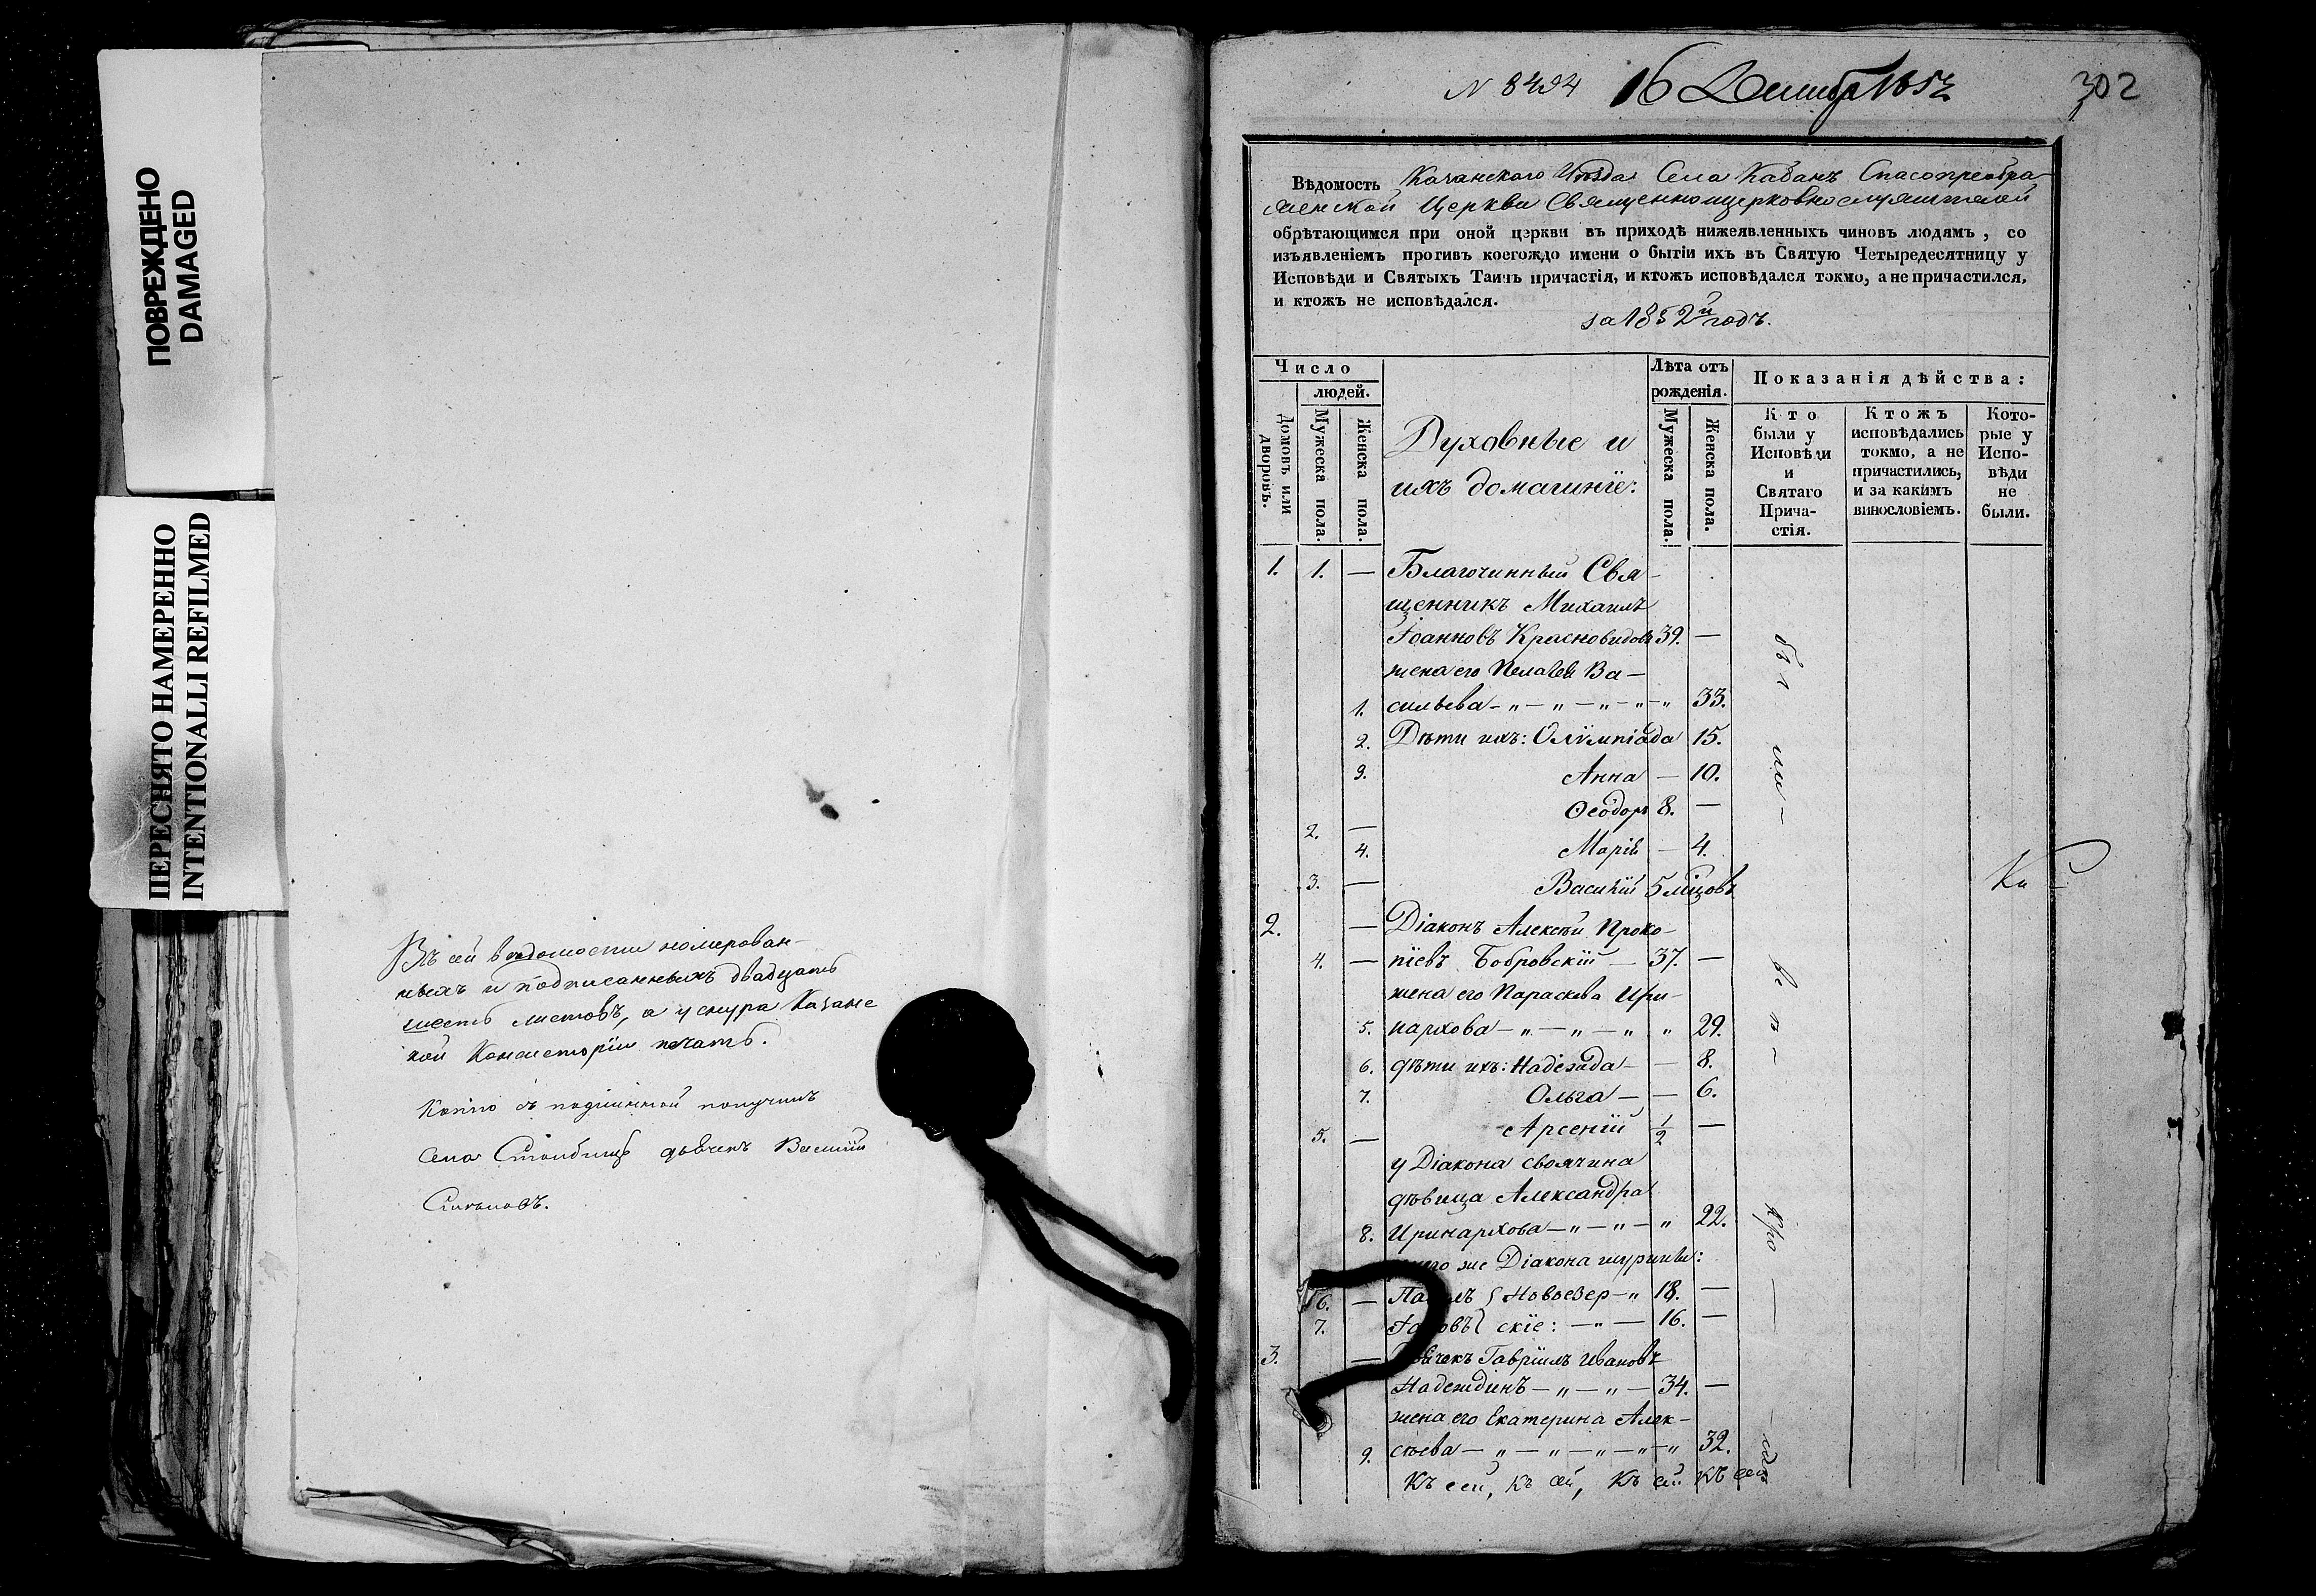 ПОВРЕЖДЕНО
DAMAGED
ПЕРЕСНЯТО НАМЕРЕННО
INTENTIONALLI REFILMED
Въ сей ведомости номерован-
ныхъ и подписанныхъ двадцать
шесть листовъ, а у снура Казанс
кой Консисторіи печать.
Копію съ подлинной получилъ
Села дьячекъ Василій
N 8494 16 1852
302
Вѣдомость Казанскаго Уѣзда Села Кабанъ Спасопреобра-
женской Церкви Священноицерковнослужителей
обрѣтающимся при оной церкви въ приходѣ нижеявленныхъ чиновъ людямъ, со
изъявленіемъ противъ коегождо имени о бытіи ихъ въ Святую Четыредесятницу у
Исповѣди и Святыхъ Таинъ причастія, и ктожъ исповѣдался токмо, а не причастился,
и ктожъ не исповѣдался.
за 1852й годъ.
Число
людей.
Домовъ или дворовъ.
Мужеска пола.
Женска пола.
Духовные и
ихъ домашніе:
Лѣта отъ
рожденія.
Мужеска пола.
Женска пола.
Показанія дѣйства:
Кто
были у
Исповѣди
и
Святаго
Прича-
стія.
Ктожъ
исповѣдались
токмо, а не
причастились,
и за какимъ
винословіемъ.
Кото-
рые у
Испо-
вѣди
не
были.
1. 1. — Благочинный Свя-
щенникъ Михаилъ
Іоанновъ Красновидовъ 39. —
жена его Пелагея Ва-
1. сильева - „ - „ - „ - „ - „ 33.
2. Дѣти ихъ: Олимпіада 15.
3. Анна — 10.
2. — Ѳеодоръ 8. —
4. Марія — 4.
3. — Василій 5 мѣсцовъ
2. — Діаконъ Алексѣй Проко-
4. — піевъ Бобровскій — 37. —
жена его Параскева Ири-
5. нархова — „ — „ — „ „ 29.
6. дѣти ихъ: Надежда — — 8.
7. Ольга — — 6.
5. — Арсеній 1/2 —
у Діакона своячина
дѣвица Александра
8. Иринархова — „ — „ — „ 22.
же Діакона шурины:
6. — Павелъ { Новоезер — „ 18. —
7. Іаковъ { скіе: — „ — 16. —
3. — Дьячекъ Гавріилъ Ивановъ
Надеждинъ — „ — „ — 34. —
жена его Екатерина Алек-
9. сѣева — „ — „ — „ — „ — „ 32.
Къ сей, къ сей, къ сей къ сей